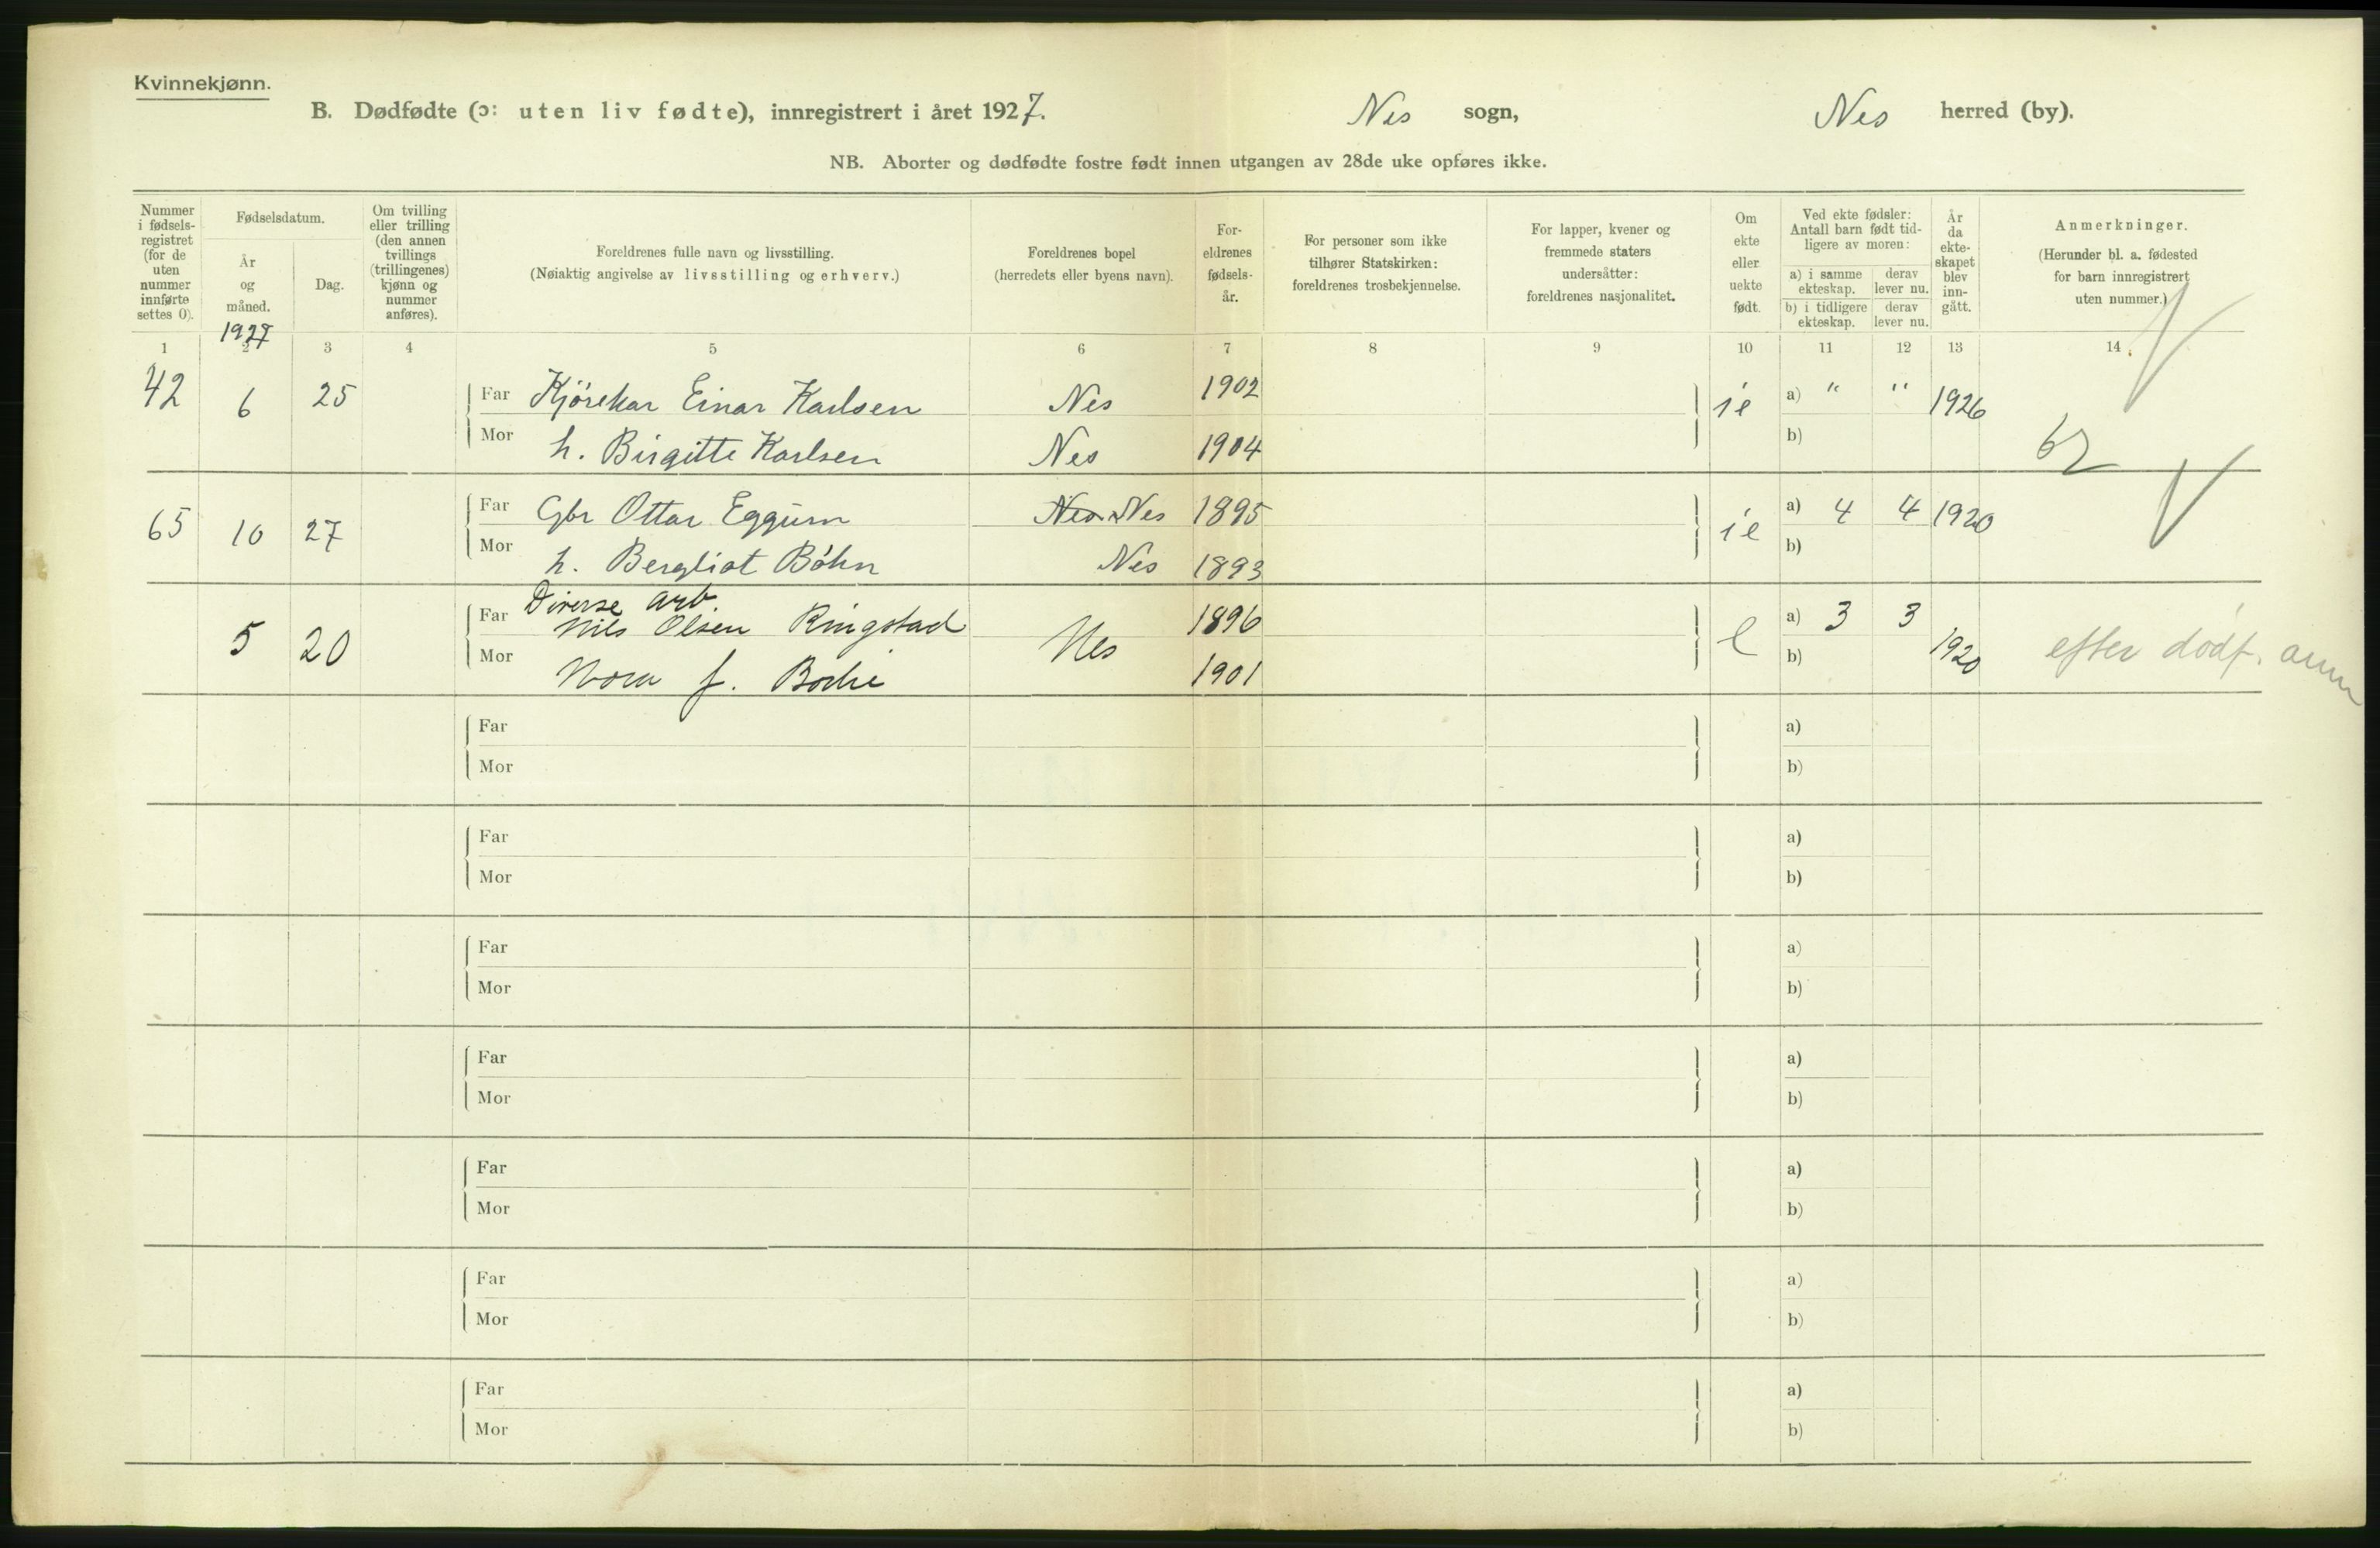 Kvinnekjønn.
B. Dødfødte (ɔ: uten liv fødte), innregistrert i året 1927. Nes sogn, Nes herred (by).
NB. Aborter og dødfødte fostre født innen utgangen av 28de uke opføres ikke.
Nummer i fødsels-registret (for de uten nummer innførte settes 0).
Fødselsdatum.
År og måned.
Dag.
Om tvilling eller trilling (den annen tvillings (trillingenes) kjønn og nummer anføres).
Foreldrenes fulle navn og livsstilling.
(Nøiaktig angivelse av livsstilling og erhverv.)
Foreldrenes bopel
(herredets eller byens navn).
For-eldrenes fødsels-år.
For personer som ikke tilhører Statskirken: foreldrenes trosbekjennelse.
For lapper, kvener og fremmede staters undersåtter: foreldrenes nasjonalitet.
Om ekte eller uekte født.
Ved ekte fødsler: Antall barn født tid-ligere av moren:
a) i samme ekteskap. derav lever nu.
b) i tidligere ekteskap. derav lever nu.
År da ekte-skapet blev inn-gått.
Anmerkninger.
(Herunder bl. a. fødested for barn innregistrert uten nummer.)
1927
1 2 3 4 5 6 7 8 9 10 11 12 13 14
42 6 25 Far Kjørekar Einar Karlsen Nes 1902 ie a) " " 1926
Mor h. Birgitte Karlsen Nes 1904 b) 62
65 10 27 Far Gbr Ottar Eggum Nes Nes 1895 ie a) 4 4 1920
Mor h. Bergliot Bøhn Nes 1893 b)
Diverse arb.
5 20 Far Nils Olsen Ringstad Nes 1896 e a) 3 3 1920 efter dødf. anm
Mor Nora f. 1901 b)
Far a)
Mor b)
Far a)
Mor b)
Far a)
Mor b)
Far a)
Mor b)
Far a)
Mor b)
Far a)
Mor b)
Far a)
Mor b)